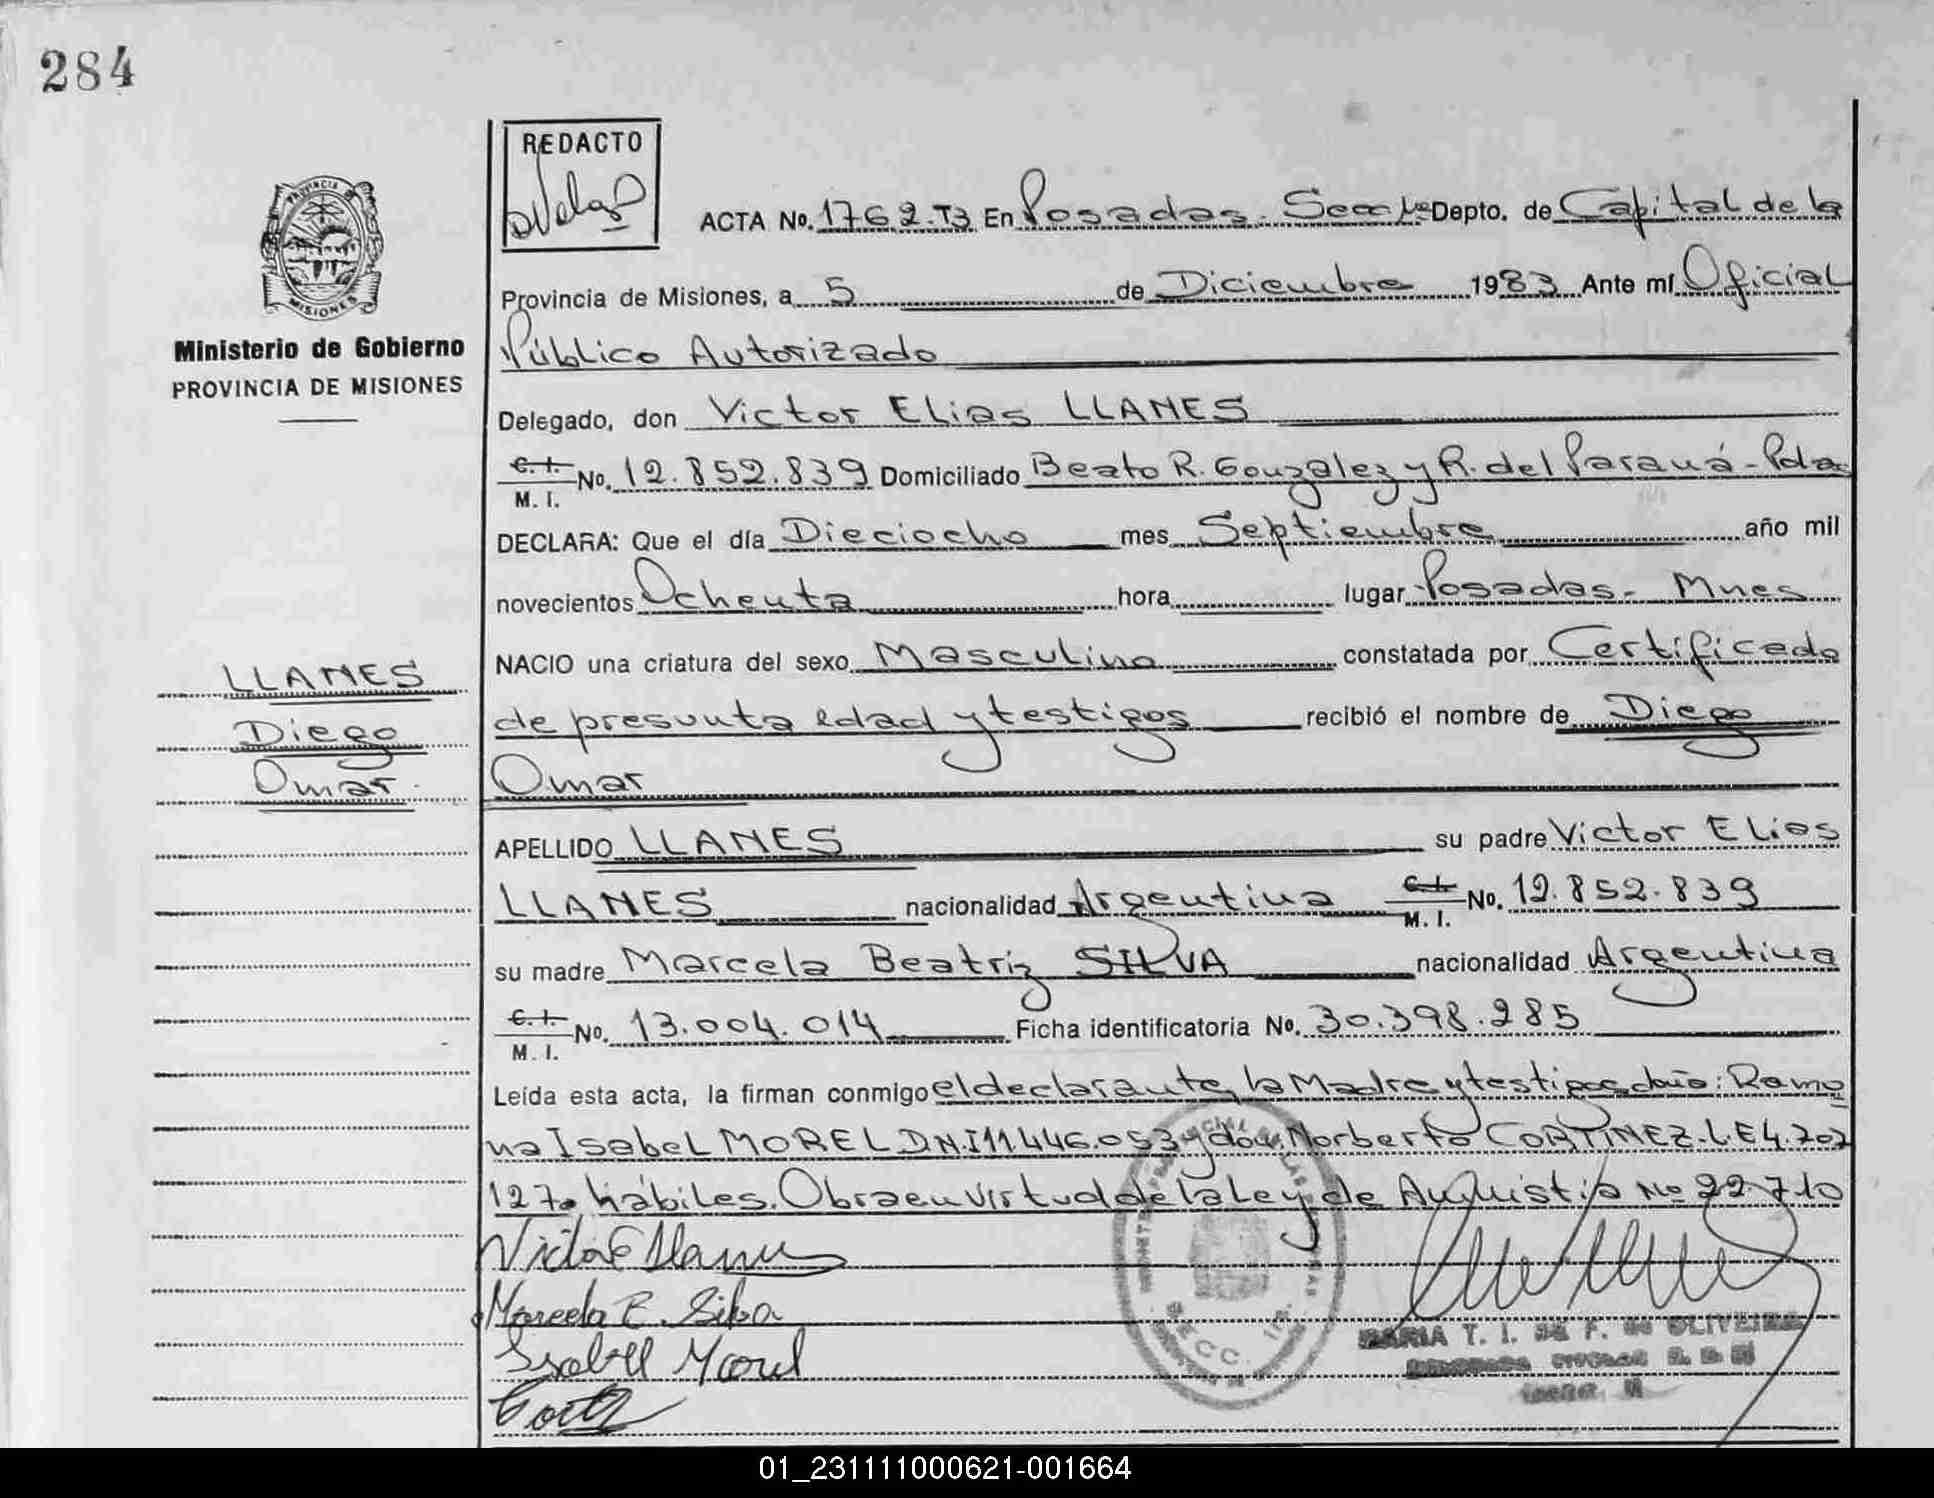 284
REDACTO
PROVINCIA DE
MISIONES
ACTA No. 1762.T3 En Posadas. Secc 1ª Depto. de Capital de la
Provincia de Misiones, a 5 de Diciembre 1983 Ante mí Oficial
Ministerio de Gobierno
PROVINCIA DE MISIONES
Público Autorizado
Delegado, don Victor Elias LLANES
C. I. M. I. No. 12.852.839 Domiciliado Beato R. Gonzalez y R. del Paraná - Pdas
DECLARA: Que el día Dieciocho mes Septiembre año mil
novecientos Ochenta hora lugar Posadas - Mnes
NACIO una criatura del sexo Masculino constatada por Certificado
LLANES
Diego
Omar
de presunta edad y testigos recibió el nombre de Diego
Omar
APELLIDO LLANES su padre Victor Elias
LLANES nacionalidad Argentina C. I. M. I. No. 12.852.839
su madre Marcela Beatriz SILVA nacionalidad Argentina
C. I. M. I. No. 13.004.014 Ficha identificatoria No. 30.398.285
Leída esta acta, la firman conmigo el declarante, la Madre y testigos doña: Ramo
na Isabel MOREL D.N.I 11.446.053 y don: Norberto CORTINEZ. L.E 4.202
127. hábiles. Obra en virtud de la Ley de Amnistia Nº 22.710
Victor E Llanes
Marcela B. Silva
Isabel Morel
MARIA T. I. DE F. DE OLIVEIRA
01_231111000621-001664